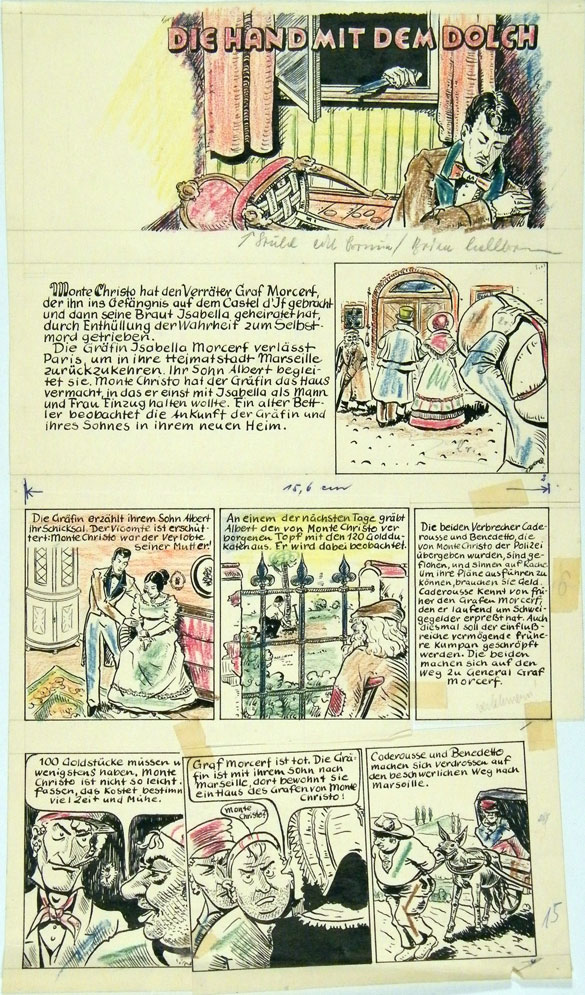 DIE HAND MIT DEM DOLCH
Monte Christo hat den Verräter Graf Morcerf,
der ihn ins Gefängnis auf dem Castel d'If gebracht
und dann seine Braut Isabella geheiratet hat,
durch Enthüllung der Wahrheit zum Selbst-
mord getrieben.
Die Gräfin Isabella Morcerf verlässt
Paris, um in ihre Heimatstadt Marseille
zurückzukehren. Ihr Sohn Albert beglei-
tet sie. Monte Christo hat der Gräfin das Haus
vermacht, in das er einst mit Isabella als Mann
und Frau Einzug halten wollte. Ein alter Bett-
ler beobachtet die Ankunft der Gräfin und
ihres Sohnes in ihrem neuen Heim.
15,6 cm
Die Gräfin erzählt ihrem Sohn Albert
ihr Schicksal. Der Vicomte ist erschüt-
tert: Monte Christo war der Verlobte
seiner Mutter!
An einem der nächsten Tage gräbt
Albert den von Monte Christo ver
borgenen Topf mit den 120 Golddu-
katen aus. Er wird dabei beobachtet.
Die beiden Verbrecher Cade-
rousse und Benedetto, die
von Monte Christo der Polizei
übergeben wurden, sind ge-
flohen, und sinnen auf Rache.
Um ihre Pläne ausführen zu
können, brauchen sie Geld.
Caderousse kennt von frü-
her den Grafen Morcerf,
den er laufend um Schwei-
gegelder erpreßt hat. Auch
diesmal soll der einfluß-
reiche vermögende frühe-
re Kumpan geschröpft
werden. Die beiden
machen sich auf den
Weg zu General Graf
Morcerf.
100 Goldstücke müssen w
wenigstens haben, Monte
Christo ist nicht so leicht
fassen, das kostet bestimm
viel Zeit und Mühe.
Graf Morcerf ist tot. Die Grä-
fin ist mit ihrem Sohn nach
Marseille, dort bewohnt sie
ein Haus des Grafen von Monte
Christo!
Monte
Christo?
Caderousse und Benedetto
machen sich verdrossen auf
den beschwerlichen Weg nach
Marsoille.
15